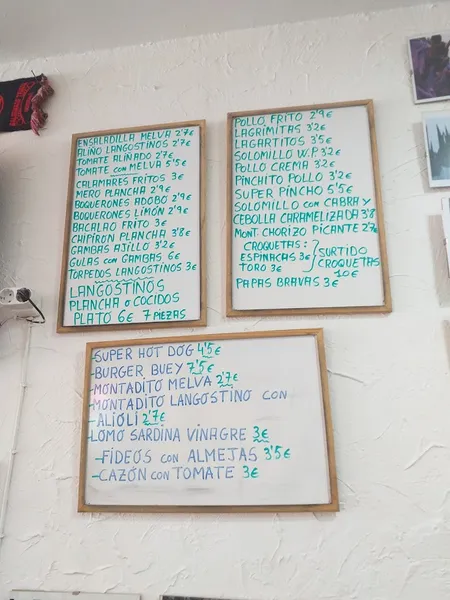 ENSALADILLA MELVA 2'7€
ALIÑO LANGOSTINOS 2'7€
TOMATE ALIÑADO 2'7€
TOMATE CON MELVA 5'5€
CALAMARES FRITOS 3€
MERO PLANCHA 2'9€
BOQUERONES ADOBO 2'9€
BOQUERONES LIMÓN 2'9€
BACALAO FRITO 3€
CHIPIRON PLANCHA 3'8€
GAMBAS AJILLO 3'2€
GULAS CON GAMBAS 6€
TORPEDOS LANGOSTINOS 3€
LANGOSTINOS
PLANCHA O COCIDOS
PLATO 6€ 7 PIEZAS
POLLO FRITO 2'9€
LAGRIMITAS 3'2€
LAGARTITOS 3'5€
SOLOMILLO W.P. 3'2€
POLLO CREMA 3'2€
PINCHITO POLLO 3'2€
SUPER PINCHO 5'5€
SOLOMILLO CON CABRA Y
CEBOLLA CARAMELIZADA 3'8
MONT. CHORIZO PICANTE 2'7€
CROQUETAS:
ESPINACAS 3€ SURTIDO
TORO 3€ CROQUETAS
10€
PAPAS BRAVAS 3€
-SUPER HOT DOG 4'5€
-BURGER BUEY 7'5€
-MONTADITO MELVA 2'7€
-MONTADITO LANGOSTINO CON
-ALIOLI 2'7€
-LOMO SARDINA VINAGRE 3€
-FIDEOS CON ALMEJAS 3'5€
-CAZÓN CON TOMATE 3€